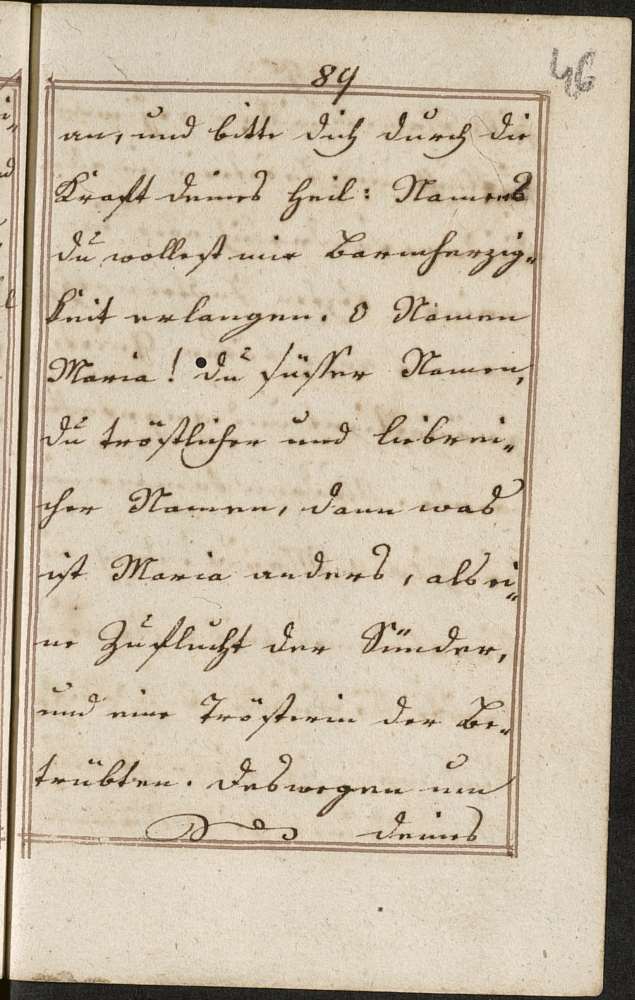 89
46
an, und bitte dich durch die
Krafft deines Heil: Namens
du wollest mir Barmherzig=
keit erlangen. O Namen
Maria! du süsser Namen,
du tröstlicher und liebrei=
cher Namen, dann was
ist Maria anders, als ei=
ne Zuflucht der Sünder,
und eine Trösterin der Be=
trübten. Deswegen um
deines